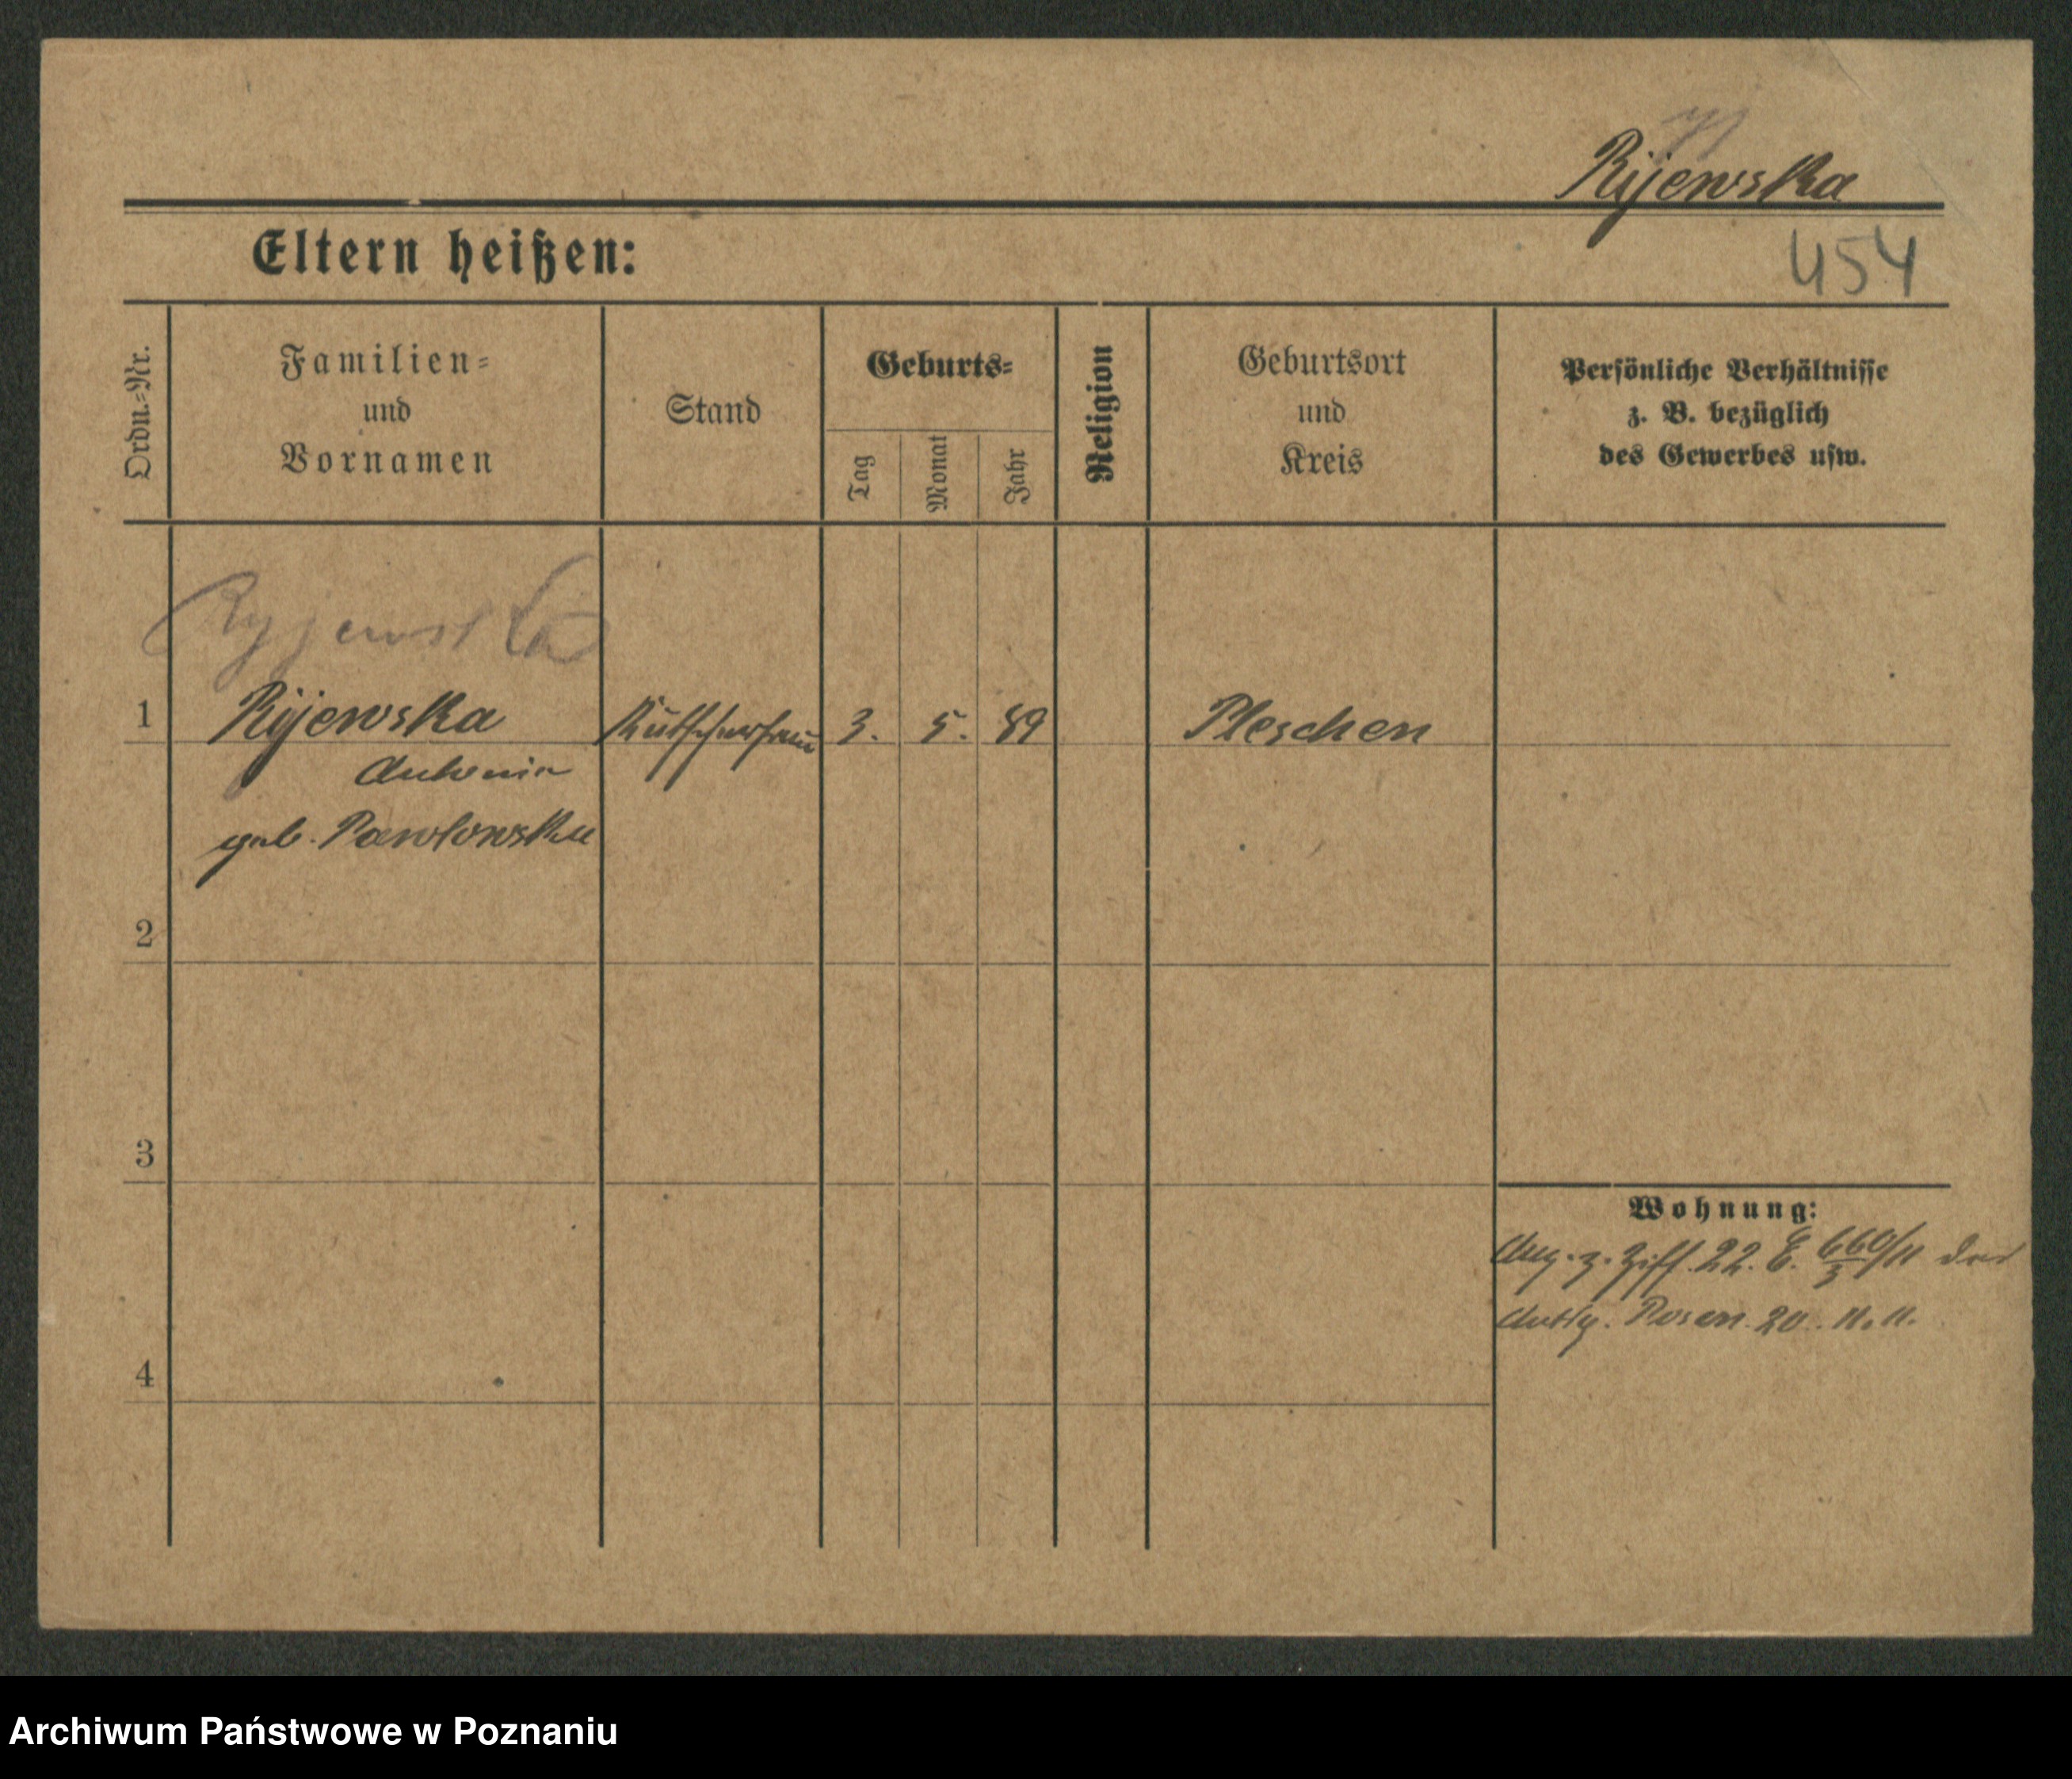 Rijewska
454
Eltern heißen:
Ordn.-Nr.
Familien-
und
Vornamen
Stand
Geburts-
Tag
Monat
Jahr
Religion
Geburtsort
und
Kreis
Persönliche Verhältnisse
z. B. bezüglich
des Gewerbes usw.
Ryjewska
1 Rijewska Kutscherfrau 3. 5. 89 Pleschen
Antonia
geb. Pawlowska
2
3
Wohnung:
z. Ziff. 22. E. 660/11
3
Posen. 20. 11. 11.
4
Archiwum Państwowe w Poznaniu